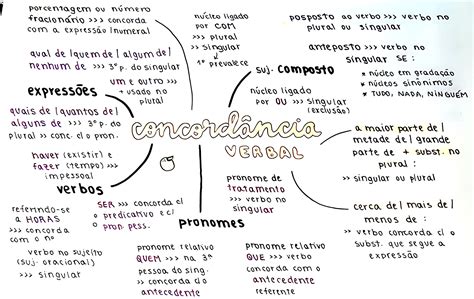 porcentagem ou número
fracionário >>> concorda
com a expressão/numeral
núcleo ligado
por COM
>>> plural
>>> singular
↳
1º prevalece
posposto ao verbo >>> verbo no
plural ou singular
anteposto >>> verbo no
singular SE:
* núcleo em gradação
* núcleos sinônimos
* TUDO, NADA, NINGUÉM
suj. composto
núcleo ligado
por OU >>> singular
(exclusão)
qual de/quem de/algum de/
nenhum de >>> 3ª p. do singular
um e outro >>>
+ usado no
plural
expressões
quais de/quantos de/
alguns de >>> 3ª p. do
plural >>> conc. c/ o pron.
concordância
VERBAL
a maior parte de/
metade de/grande
parte de + subst. no
plural:
>>> singular ou plural
cerca de/mais de/
menos de:
>>> verbo concorda c/ o
subst. que segue a
expressão
haver (existir) e
fazer (tempo) >>>
impessoal
verbos
SER >>> concorda c/
o predicativo e c/
o pron. pess.
referindo-se
a HORAS
>>> concorda
com o nº
verbo no sujeito
(suj. oracional)
>>> singular
pronome de
tratamento
>>> verbo no
singular
pronomes
pronome relativo
QUEM >>> na 3ª
pessoa do sing.
>>> concorda c/ o
antecedente
pronome relativo
QUE >>> verbo
concorda com o
antecedente
referente